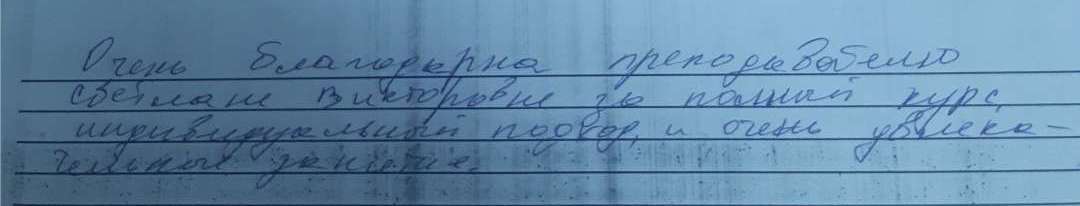 Очень благодарна преподавателю
Светлане Викторовне за полный курс,
индивидуальный подход, и очень увлека-
тельные занятие.